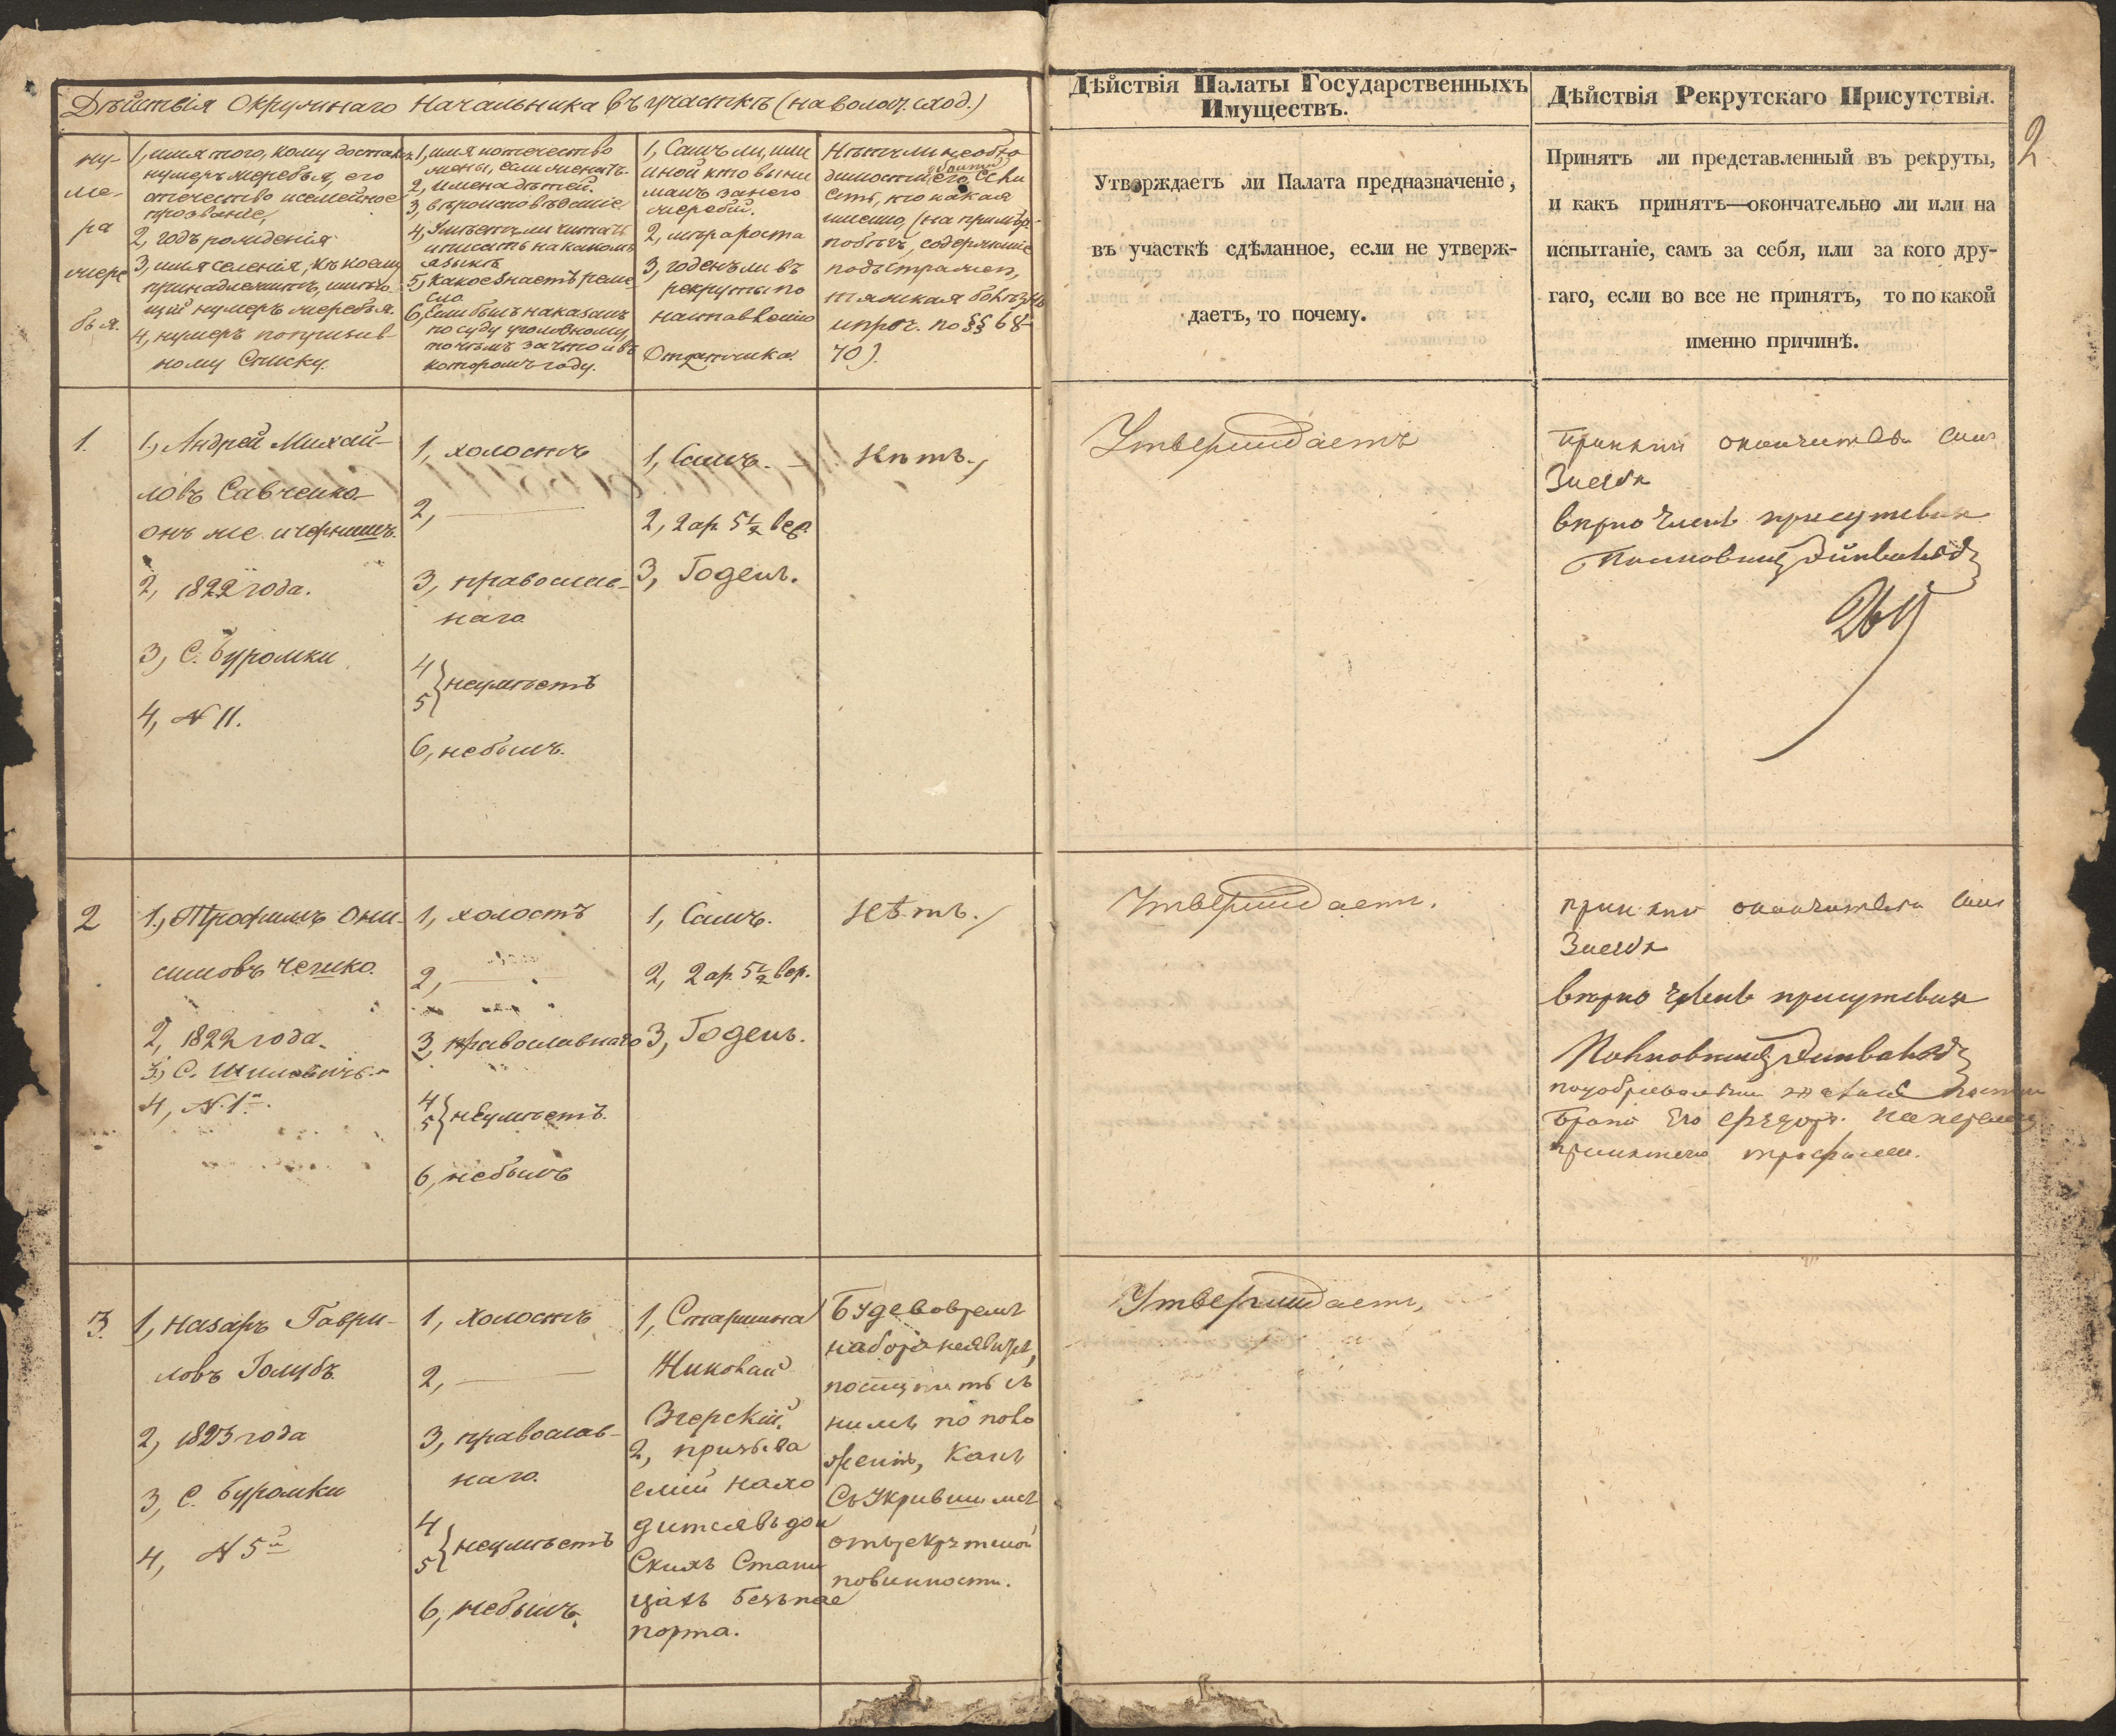 Дѣйствія Окружнаго Начальника въ участкѣ (на волост. сход.)
ну-
ме-
ра
жере
бья.
1, имя того, кому достался
нумеръ жеребья, его
отечество и семейное
прозваніе,
2, годъ рожденія
3, имя селенія, къ коему
принадлежитъ,
щій нумеръ жеребья.
4, нумеръ по призыв-
ному списку.
1, имя и отечество
жены, если женатъ.
2, имена дѣтей.
3, вѣроисповѣданіе
4, Умѣетъ ли читать
и писать на какомъ
языкѣ
5, Какое знаетъ реме-
сло
6, Если былъ наказанъ
по суду уголовному,
то чѣмъ за что и въ
которомъ году.
1, Самъ ли, или
иной кто выни
малъ за него
жеребій.
2, мѣра роста
3, годенъ ли въ
рекруты по
наставленію
Отдатчика.
Нѣтъ ли необхо
димости его, если
есть, то какая
именно, (на примѣръ
побѣгъ, содержаніе
подъ стражею,
тяжкая болѣзнь
и проч. по §§ 68-
70).
Дѣйствія Палаты Государственныхъ
Имуществъ.
Утверждаетъ ли Палата предназначеніе,
въ участкѣ сдѣланное, если не утверж-
даетъ, то почему.
Дѣйствія Рекрутскаго Присутствія.
2
Принятъ ли представленный въ рекруты,
и какъ принятъ—окончательно ли или на
испытаніе, самъ за себя, или за кого дру-
гаго, если во все не принятъ, то по какой
именно причинѣ.
1.
1, Андрей Михай-
ловъ Савченко
онъ же и чернышъ.
2, 1822 года.
3, С. Буромки
4, N 11.
1, холостъ
2,
3, православ-
наго
4
5 } неумѣетъ
6, небылъ.
1, Самъ.
2, 2 ар. 5½ вер.
3, Годенъ.
Нѣтъ.
Утверждаетъ
Принятъ окончательно самъ
За себя
вѣрно Членъ присутствия
Полковникъ
2
1, Трофимъ Они-
симовъ
2, 1822 года.
3, С. Шиловичъ
4, N. 1й.
1, холостъ
2,
3, православнаго
4
5 } неумѣетъ.
6, небылъ
1, Самъ.
2, 2 ар. 5½ вер.
3, Годенъ.
Нѣтъ.
Утверждаетъ.
принятъ окончательно самъ
За себя
вѣрно Членъ присутствия
Полковникъ
принятаго трофима.
3.
1, Назаръ Гаври-
ловъ Голубъ
2, 1823 года
3, С. Буромки
4, N 5й
1, холостъ
2,
3, православ-
наго.
4
5 } неумѣетъ
6, небылъ.
1, Старшина
Николай
2,
емій нахо
дится въ дон
скихъ Стани
цахъ безъ пас
порта.
Буде во время
набора неявится,
поступить съ
нимъ по поло
женію, какъ
съ укрывшимся
отъ рекрутской
повинности.
Утверждаетъ,